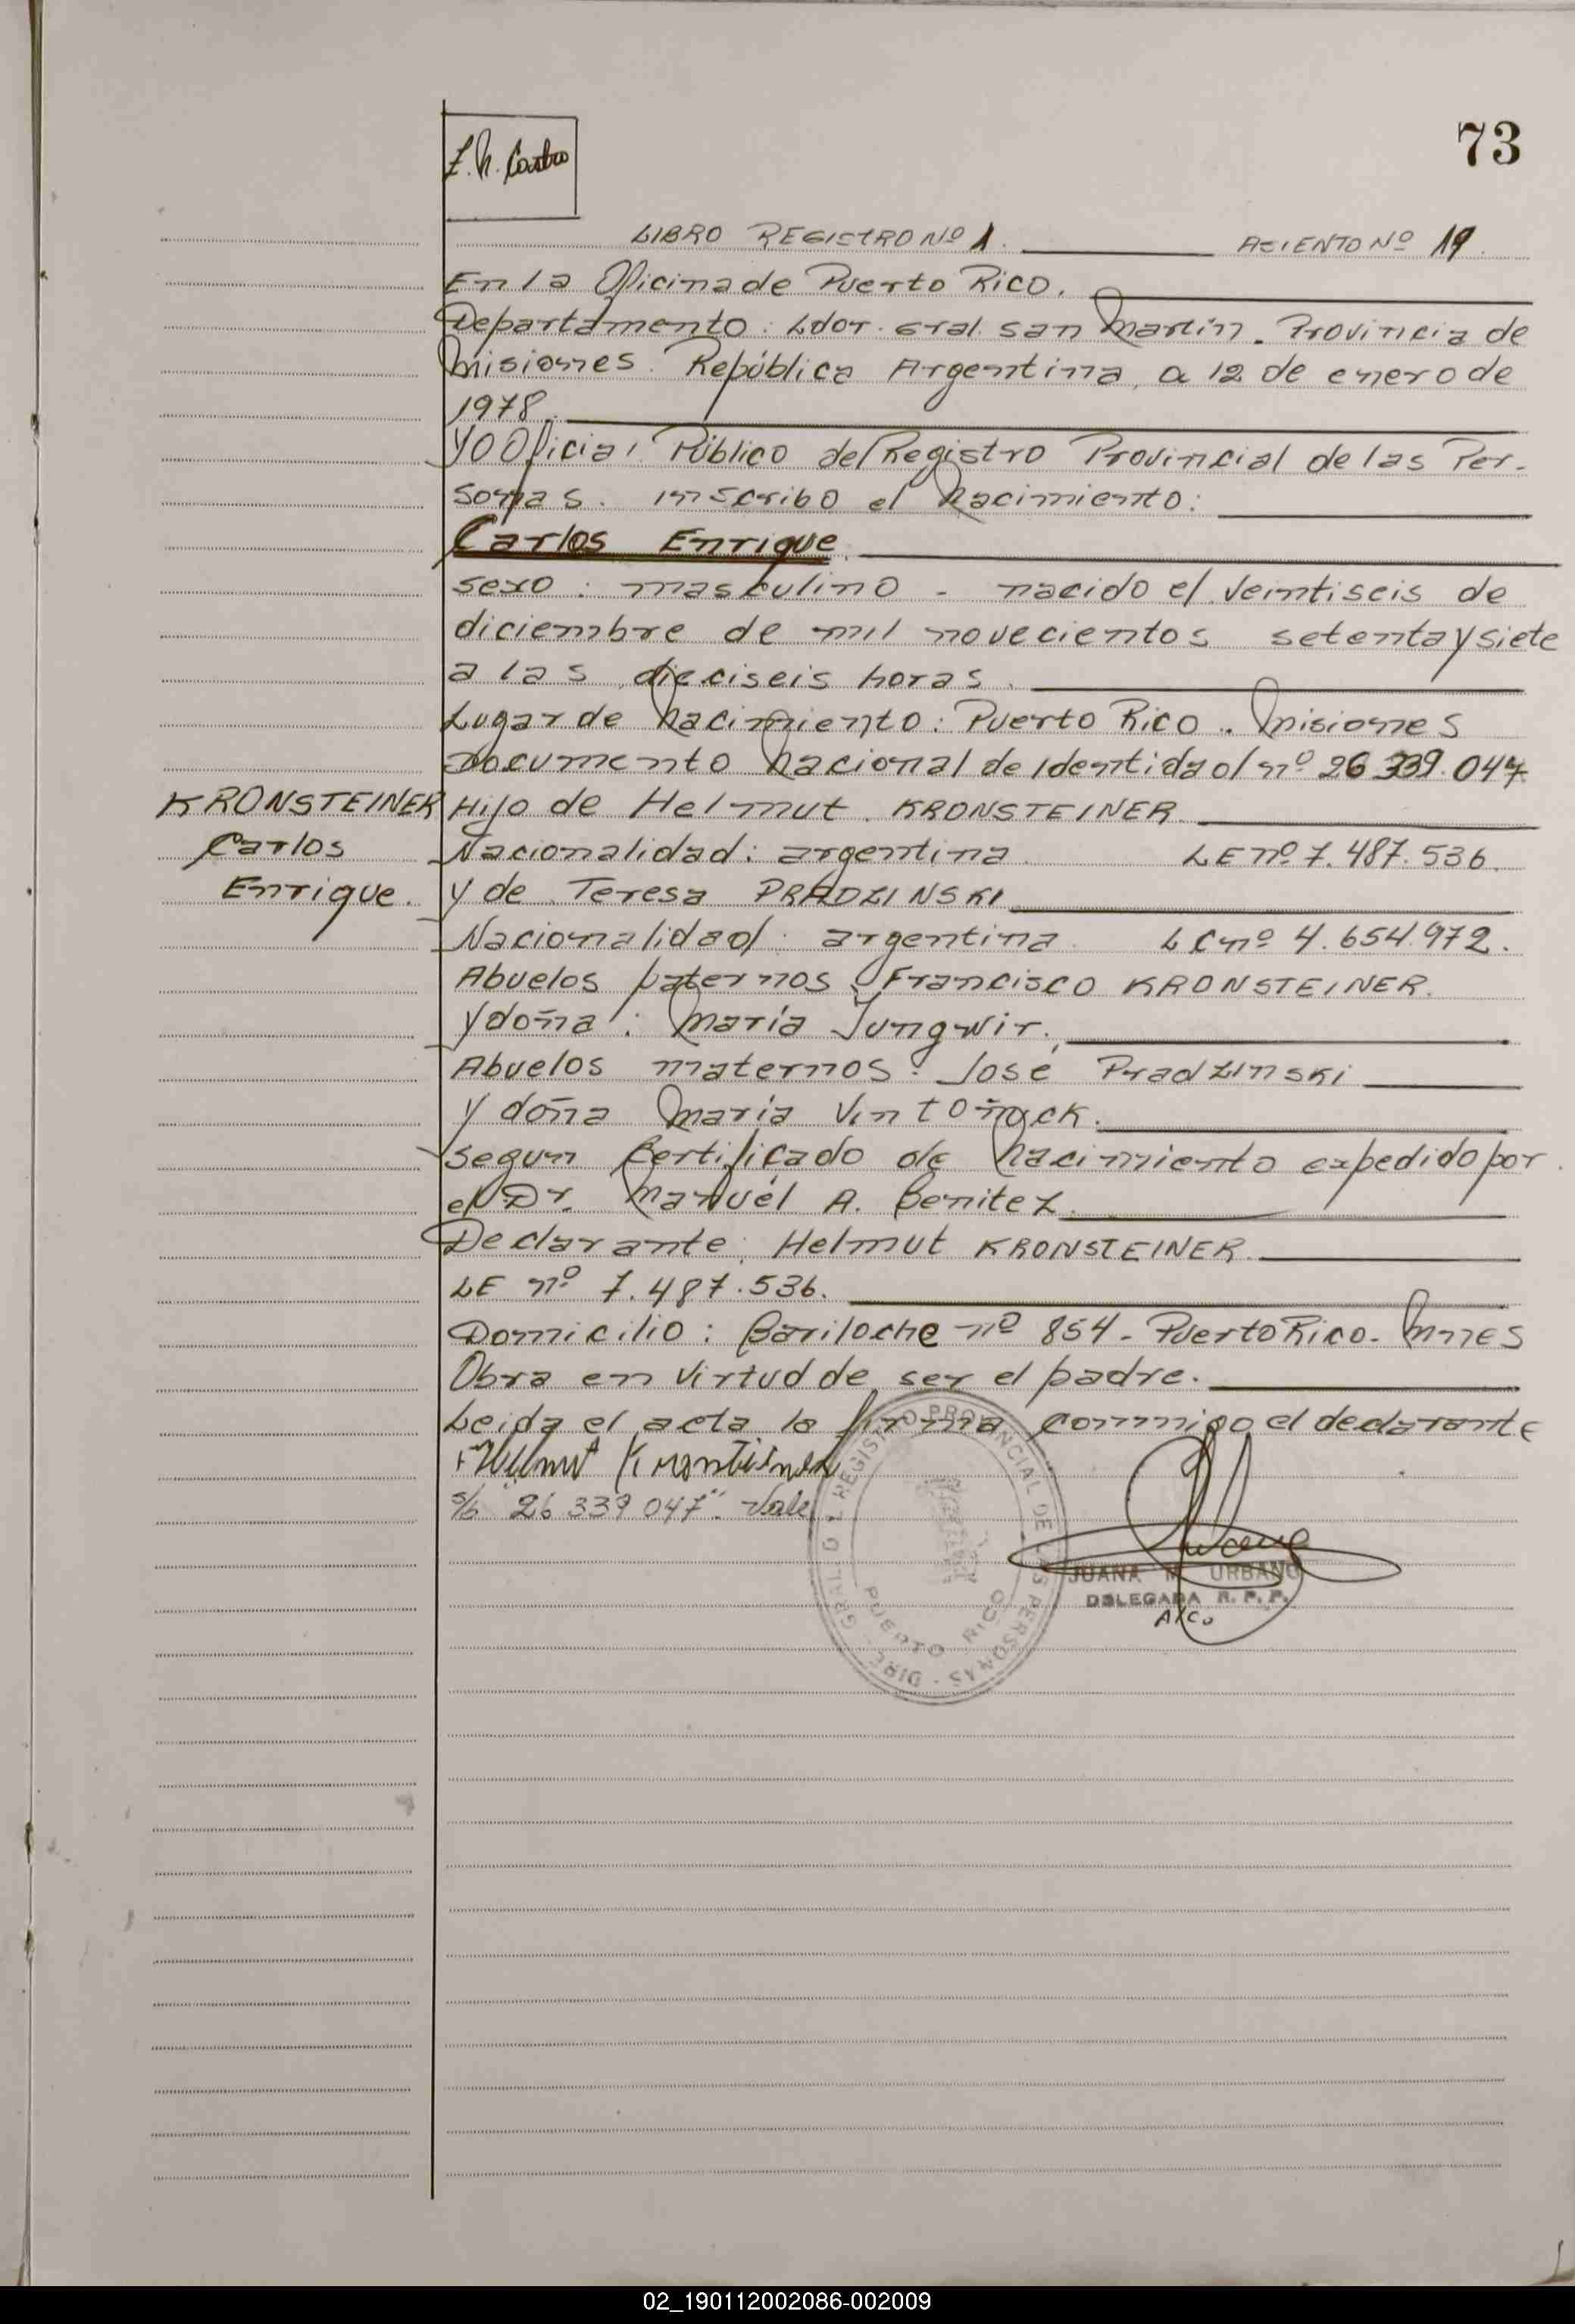 73
LIBRO REGISTRO Nº 1. ACIENTO Nº 19.
En la Oficina de Puerto Rico.
Departamento: Ldor. Gral. San Martín. Provincia de
Misiones. República Argentina, a 12 de enero de
1978.
Yo Oficial Público del Registro Provincial de las Per-
sonas. inscribo el Nacimiento:
Carlos Enrique.
sexo: masculino - nacido el veintiseis de
diciembre de mil novecientos setenta y siete
a las dieciseis horas.
Lugar de Nacimiento: Puerto Rico.. Misiones
Documento Nacional de Identidad nº 26 339.047
KRONSTEINER Hijo de Helmut. KRONSTEINER.
Carlos Nacionalidad: argentina. LE nº 7.487.536.
Enrique. y de Teresa PRADZINSKI
Nacionalidad: argentina. LC nº 4.654.972.
Abuelos paternos: Francisco KRONSTEINER.
y doña: María Jungwir.
Abuelos maternos: José Pradzinski
y doña María
segun Certificado de Nacimiento expedido por
el Dr. Manuel A. Benitez.
Declarante: Helmut KRONSTEINER.
LE nº 7.487.536.
Domicilio: Bariloche nº 854 - Puerto Rico - Mnes
Obra en virtud de ser el padre.
Leida el acta la firma conmigo el declarante
Helmut Kronsteiner
s/b "26 339 047". Vale
DIREC. GRAL. DEL REGISTRO PROVINCIAL DE LAS PERSONAS -
PUERTO RICO
JUANA M. URBANO
DELEGADA R. P. P.
A/C.
02_190112002086-002009